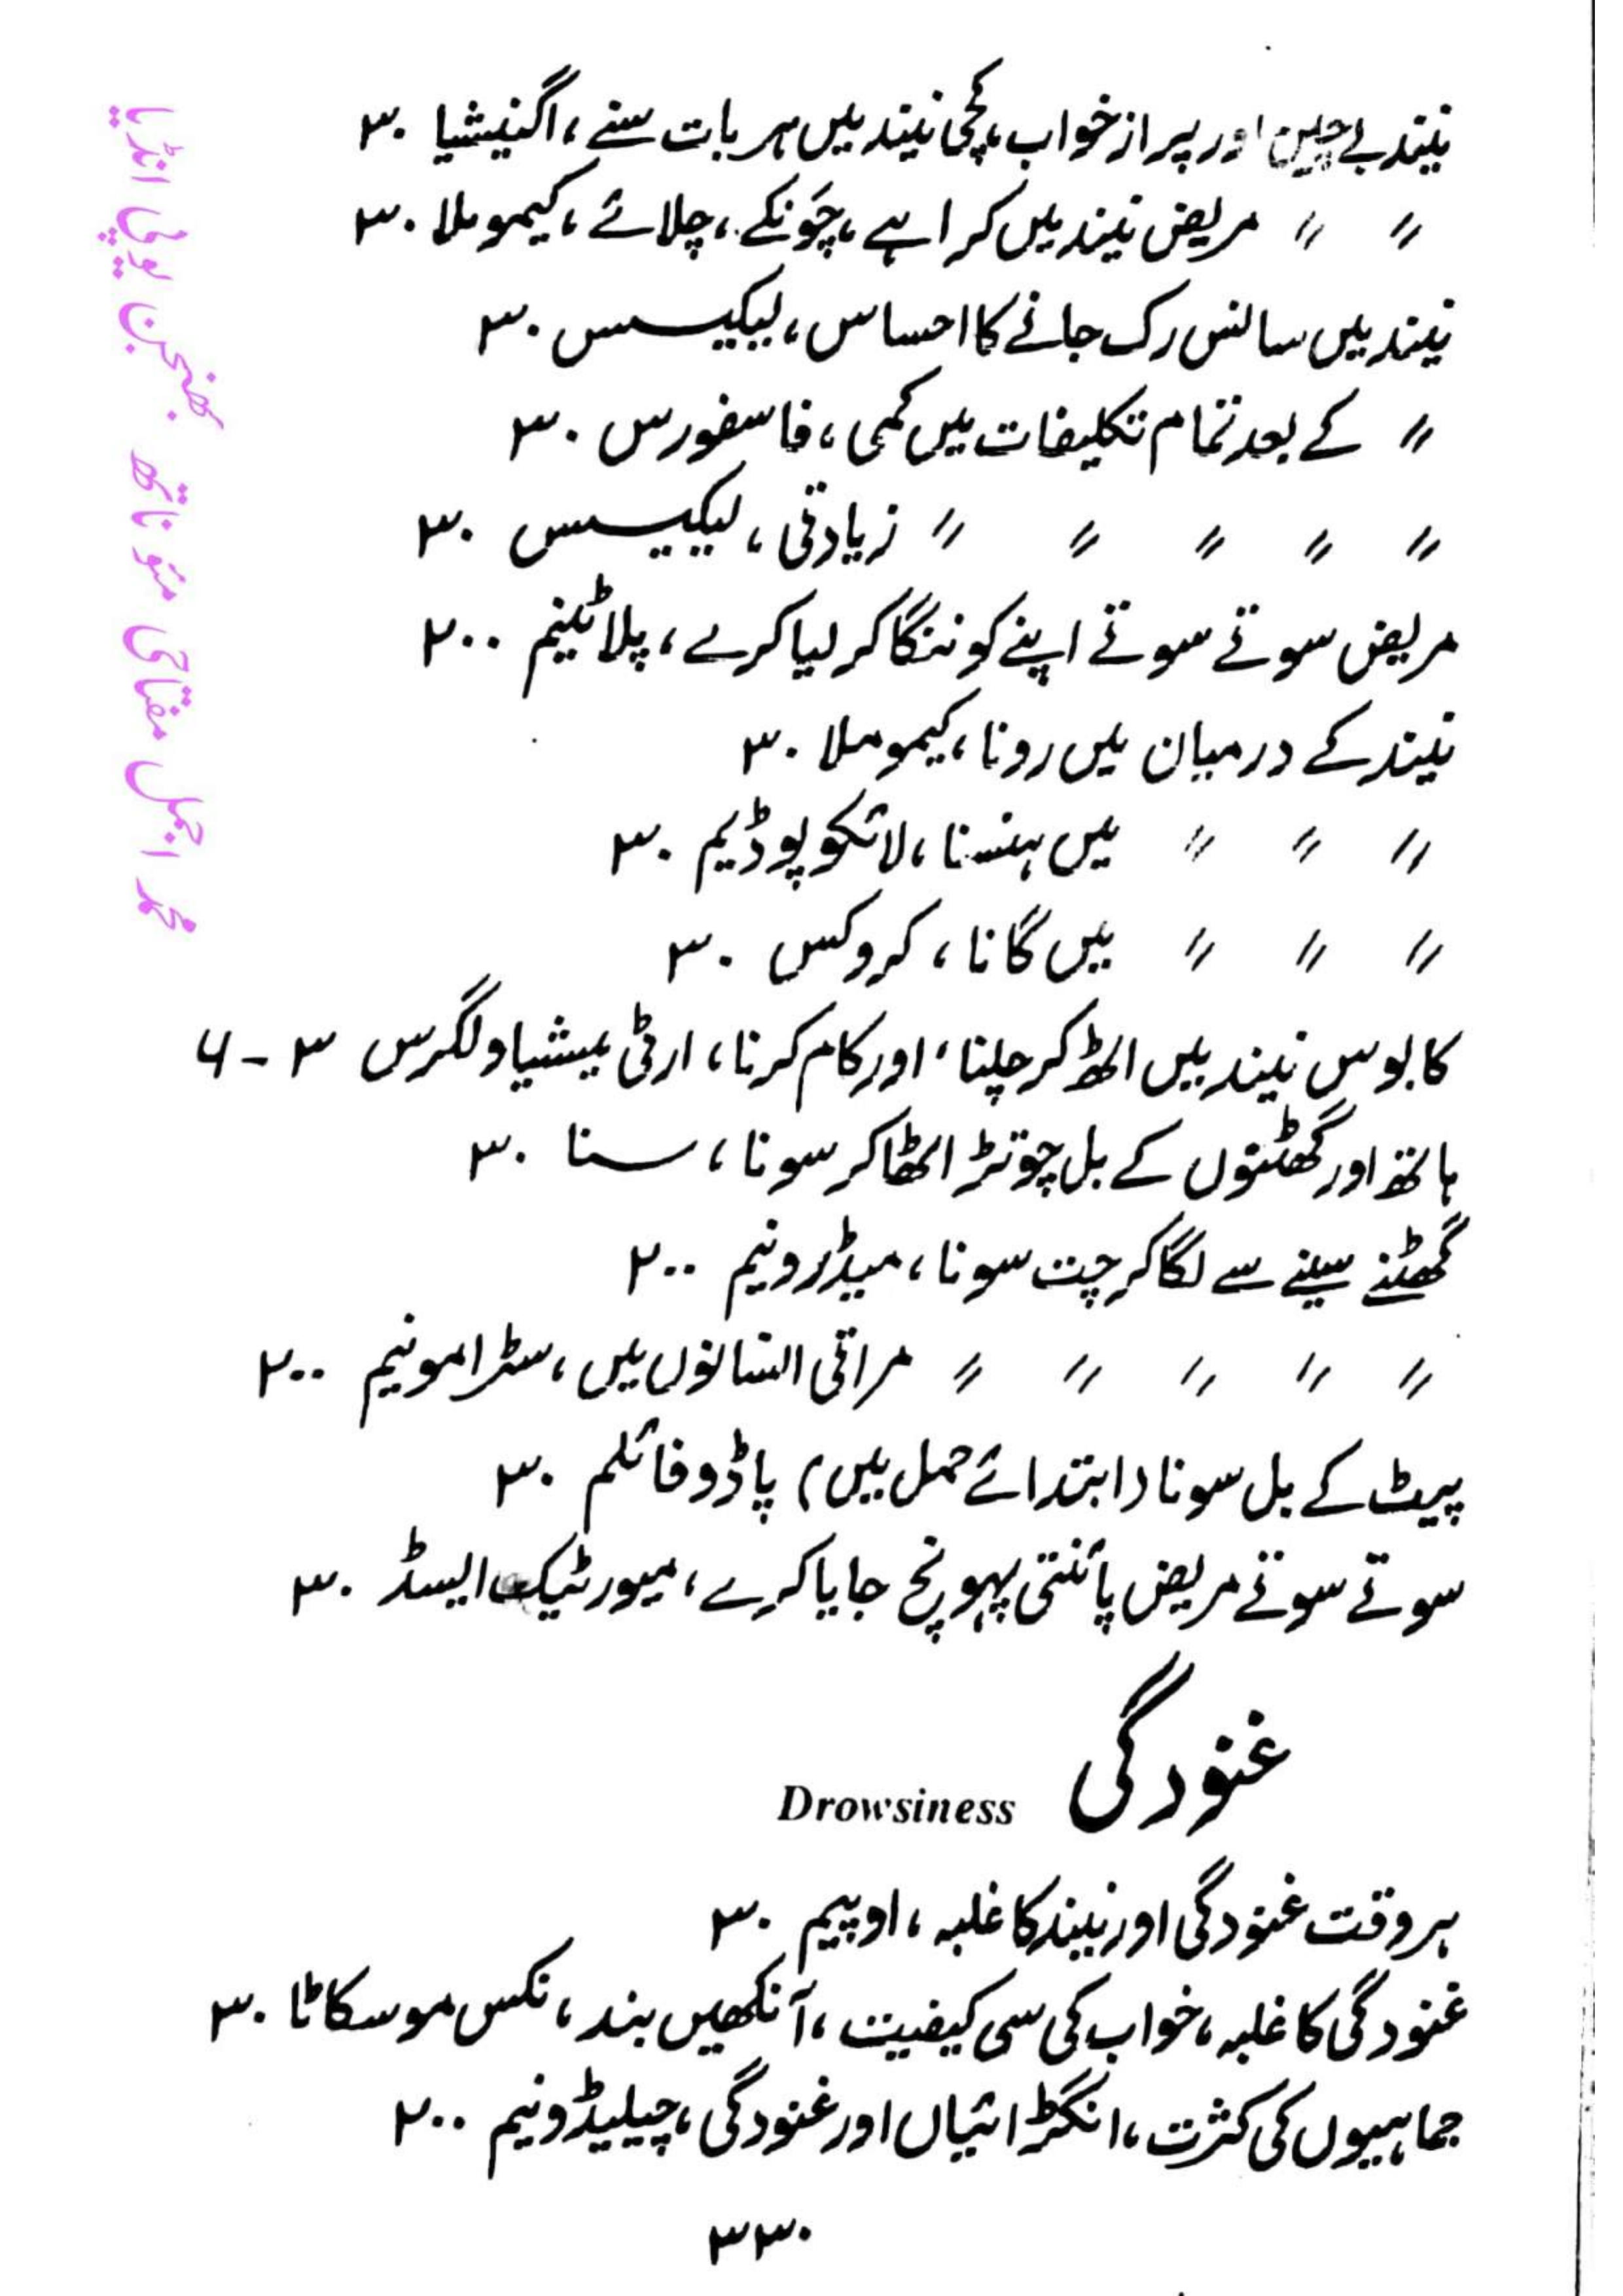 نیند بے چین اور پر از خواب، کچی نیند میں ہر بات سنے، اگنیشیا ۳۰
〃 〃 مریض نیند میں کراہے، چَونکے، چلائے، کیموملا ۳۰
نیند میں سانس رک جانے کا احساس، لیکیسس ۳۰
〃 کے بعد تمام تکلیفات میں کمی، فاسفورس ۳۰
〃 〃 〃 〃 〃 زیادتی، لیکیسس ۳۰
مریض سوتے سوتے اپنے کو ننگا کر لیا کرے، پلاٹینم ۲۰۰
نیند کے درمیان میں رونا، کیموملا ۳۰
〃 〃 〃 میں ہنسنا، لائکوپوڈیم ۳۰
〃 〃 〃 میں گانا، کروکس ۳۰
کابوس نیند میں اٹھ کر چلنا، اور کام کرنا، ارٹی میشیا ولگرس ۳ - ۶
ہاتھ اور گھٹنوں کے بل چوتڑ اٹھا کر سونا، سنا ۳۰
گھٹنے سینے سے لگا کر چت سونا، میڈرونیم ۲۰۰
〃 〃 〃 〃 〃 مراقی انسانوں میں، سٹرامونیم ۲۰۰
پیٹ کے بل سونا (ابتدائے حمل میں) پاڈوفائلم ۳۰
سوتے سوتے مریض پائنتی پہونچ جایا کرے، میورٹیک ایسڈ ۳۰
غنودگی Drowsiness
ہر وقت غنودگی اور نیند کا غلبہ، اوپیم ۳۰
غنودگی کا غلبہ، خواب کی سی کیفیت، آنکھیں بند، نکس موسکاٹا ۳۰
جماہیوں کی کثرت، انگڑائیاں اور غنودگی، چیلیڈونیم ۲۰۰
۳۳۰
محمد اجمل مفتاحی مئو ناتھ بھنجن یوپی انڈیا